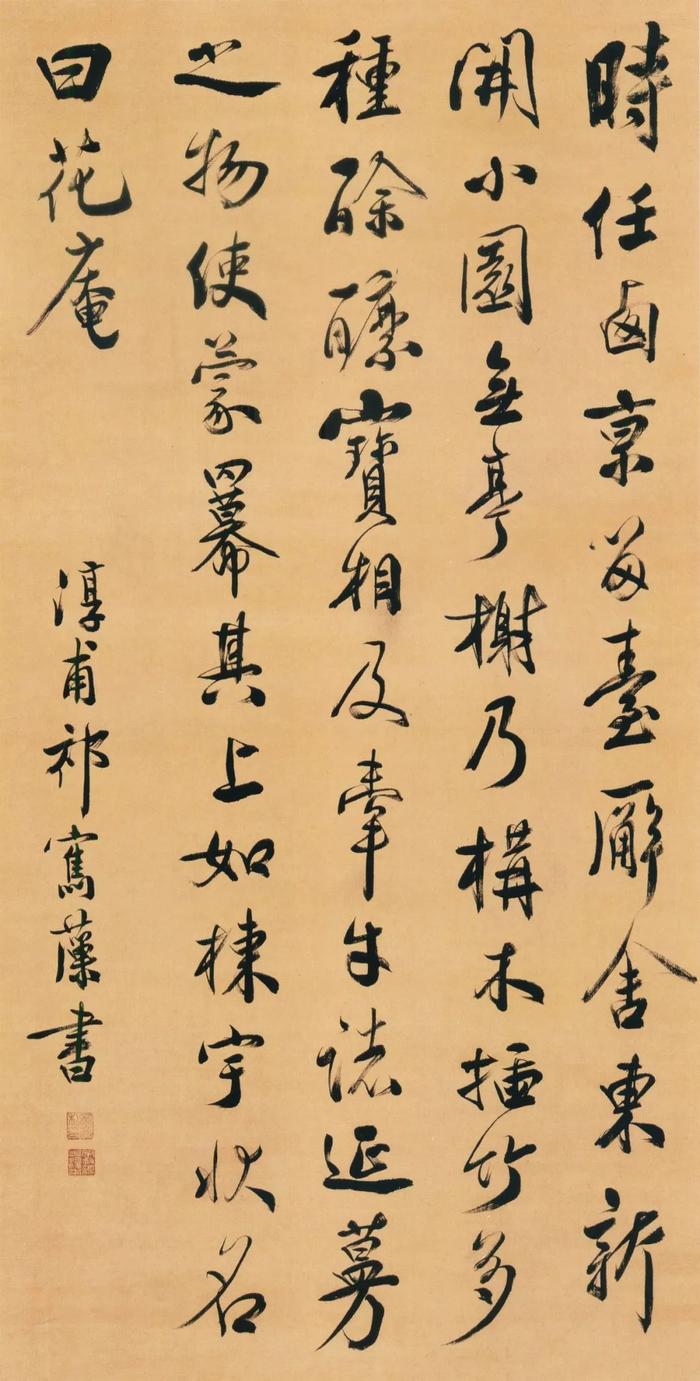 時任卤京留臺廨舍東新
開小園無亭榭乃構木插竹多
種酴醿寶相及牽牛諸延蔓
之物使蒙羃其上如棟宇状名
曰花庵
淳甫祁寯藻書